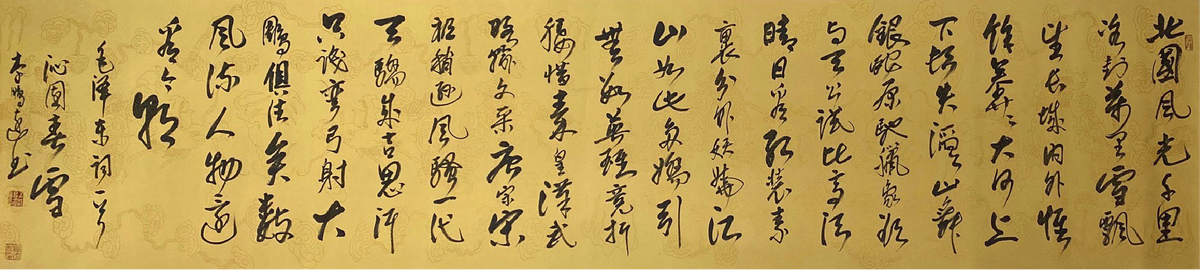 北國風光千里
冰封萬里雪飄
望長城內外惟
餘莽々大河上
下頓失滔々山舞
銀蛇原馳臘象欲
与天公試比高須
晴日看紅裝素
裹分外妖嬈江
山如此多嬌引
無數英雄競折
腰惜秦皇漢武
略輸文采唐宗宋
祖稍遜風騷一代
天驕成吉思汗
只識彎弓射大
鵰俱往矣數
風流人物還
看今朝
毛澤東詞一首
沁園春雪
李
书